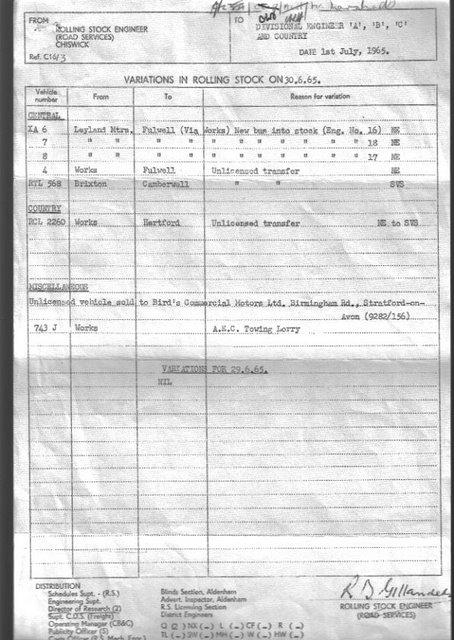 FROM
ROLLING STOCK ENGINEER
(ROAD SERVICES)
CHISWICK
Ref. C16/3
TO
DIVISIONAL ENGINEER 'A', 'B', 'C'
AND COUNTRY
DATE 1st July, 1965.
VARIATIONS IN ROLLING STOCK ON 30.6.65.
Vehicle number From To Reason for variation
CENTRAL
XA 6 Leyland Mtrs. Fulwell (Via Works) New bus into stock (Eng. No. 16) NE
7 " " " " " " " " " " " 18 NE
8 " " " " " " " " " " " 17 NE
4 Works Fulwell Unlicensed transfer NE
RTL 568 Brixton Camberwell " " SVS
COUNTRY
RCL 2260 Works Hertford Unlicensed transfer NE to SVS
MISCELLANEOUS
Unlicensed vehicle sold to Bird's Commercial Motors Ltd. Birmingham Rd., Stratford-on-
Avon (9282/156)
743 J Works A.E.C. Towing Lorry
VARIATIONS FOR 29.6.65.
NIL
DISTRIBUTION
Schedules Supt. - (R.S.)
Engineering Supt.
Director of Research (2)
Supt. C.O.S. (Freight)
Operating Manager (CB&C)
Publicity Officer (5)
Blinds Section, Aldenham
Advert. Inspector, Aldenham
R.S. Licensing Section
District Engineers
Q (2) NX (-) L (-) CF (-) R (-)
TL (-) SW (-) MH (-) W (-) HW (-)
ROLLING STOCK ENGINEER
(ROAD SERVICES)